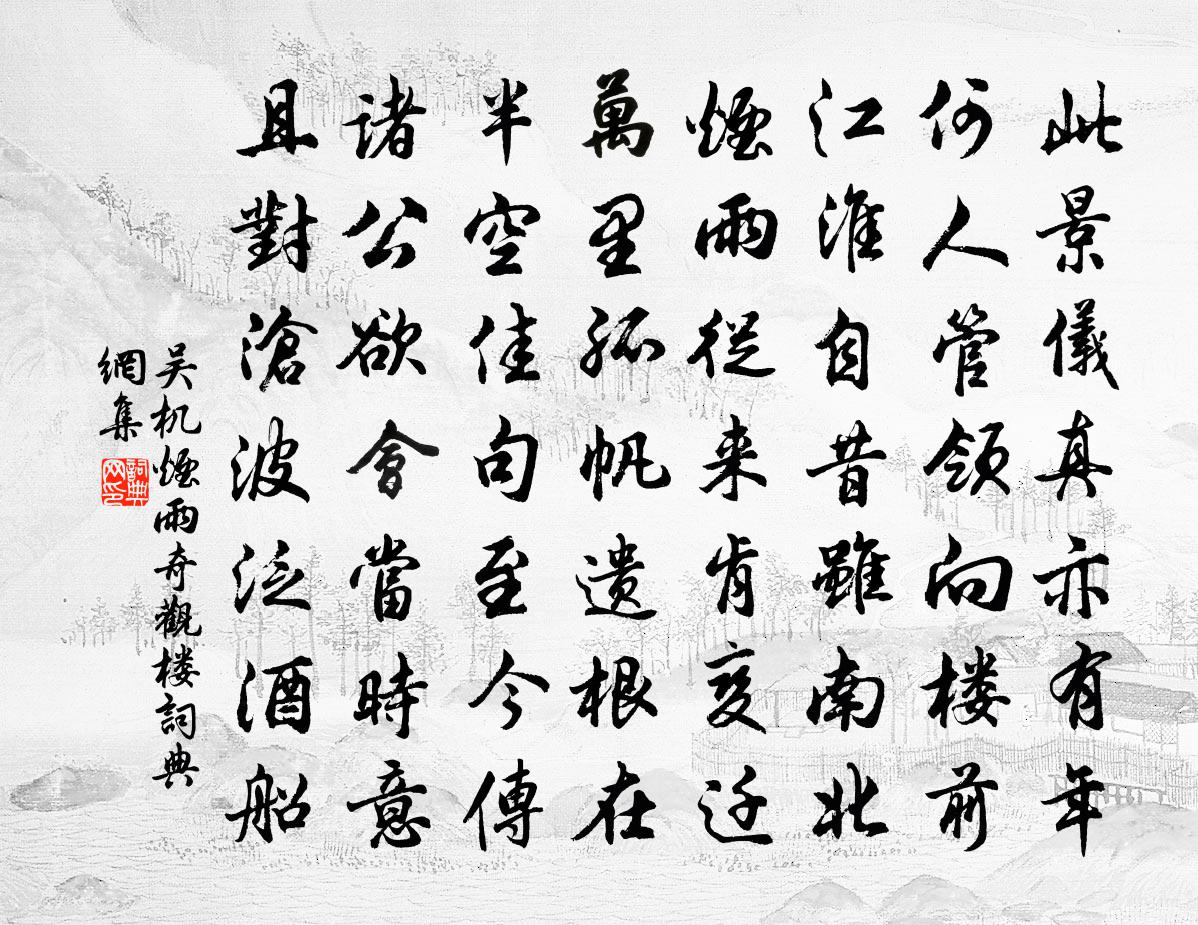 此景儀真亦有年
何人管領向楼前
江淮自昔雖南北
煙雨從来肯变迁
萬里孤帆遗根在
半空佳句至今傳
诸公欲會當時意
且對滄波泛酒船
吴机煙雨奇觀楼詞典
網集
詞典
网印